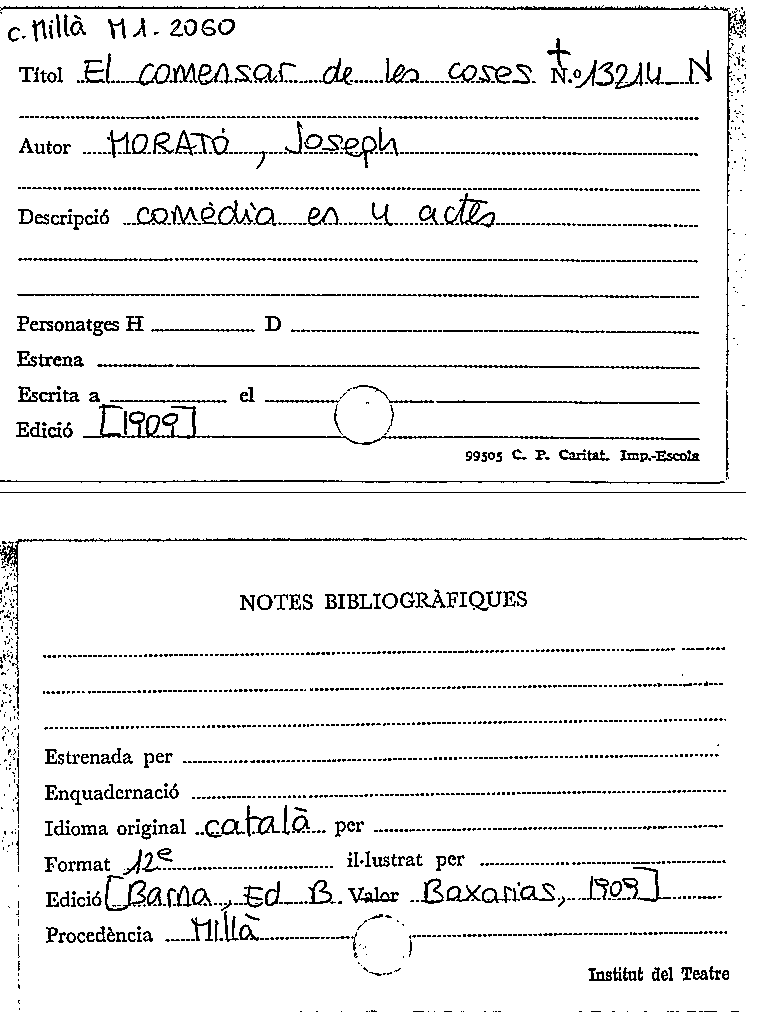 C. Millà M1. 2060
Títol El comensar de les coses N.º 13214 N
Autor MORATÓ, Joseph
Descripció comèdia en 4 actes
Personatges H D
Estrena
Escrita a el
Edició [1909]
99505 C. P. Caritat. Imp.-Escola
NOTES BIBLIOGRÀFIQUES
Estrenada per
Enquadernació
Idioma original català per
Format 12e il·lustrat per
Edició [Barna, Ed B. Valor Baxarias, 1909]
Procedència Millà
Institut del Teatre